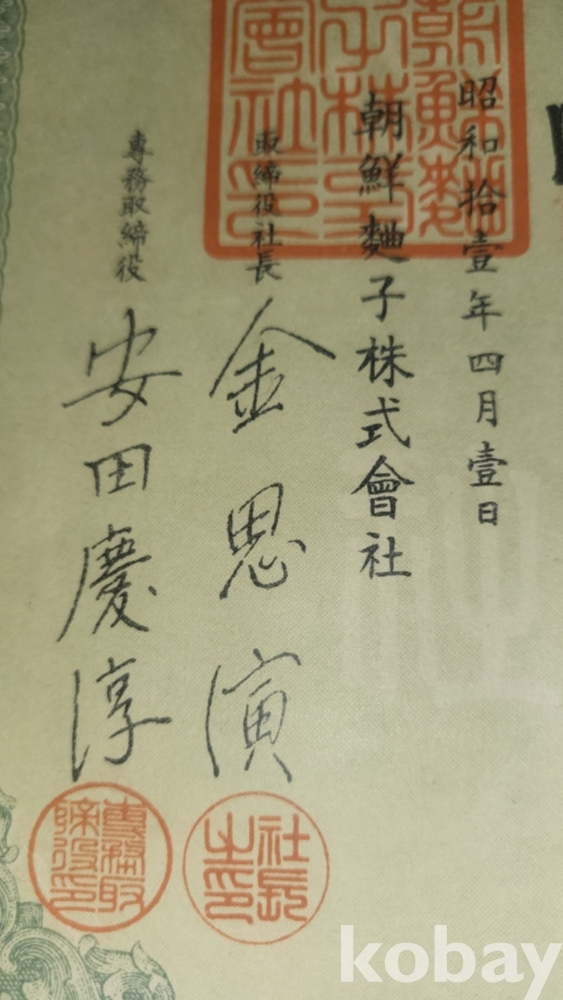 昭和拾壹年四月壹日
朝鮮麯子株式會社
取締役社長 金思演
専務取締役 安田慶淳
朝鮮麯子株式會社印
社長之印
専務取締役印
kobay